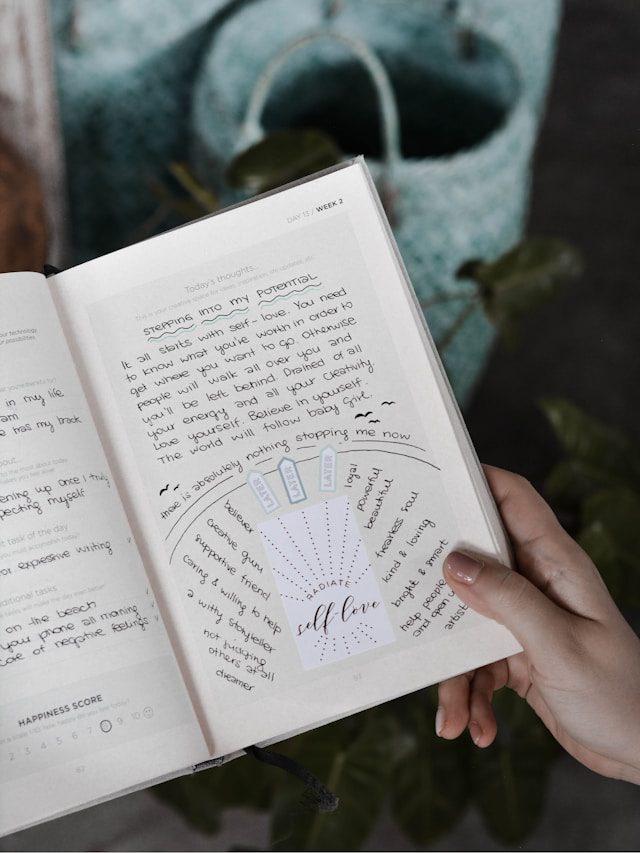 our technology
our possibilities.
in my life
am
e has my back
about...
ening up once I truly
pecting myself
nt task of the day
for expressive writing
ditional tasks
on the beach
your phone all morning
care of negative feelings
HAPPINESS SCORE
2 3 4 5 6 7 8 9 10
DAY 13 / WEEK 2
Today's thoughts...
This is your creative space for ideas, inspiration, life updates, etc.
STEPPING INTO MY POTENTIAL
It all starts with self-love. You need
to know what you're worth in order to
get where you want to go. Otherwise
people will walk all over you and
you'll be left behind. Drained of all
your energy and all your creativity.
Love yourself. Believe in yourself.
The world will follow baby girl.
there is absolutely nothing stopping me now
LATER
LATER
LATER
believer
creative guru
supportive friend
caring & willing to help
a witty storyteller
not judging
others at all
dreamer
RADIATE
self love
loyal
powerful
beautiful
fearless soul
kind & loving
bright & smart
help people
and open
artist